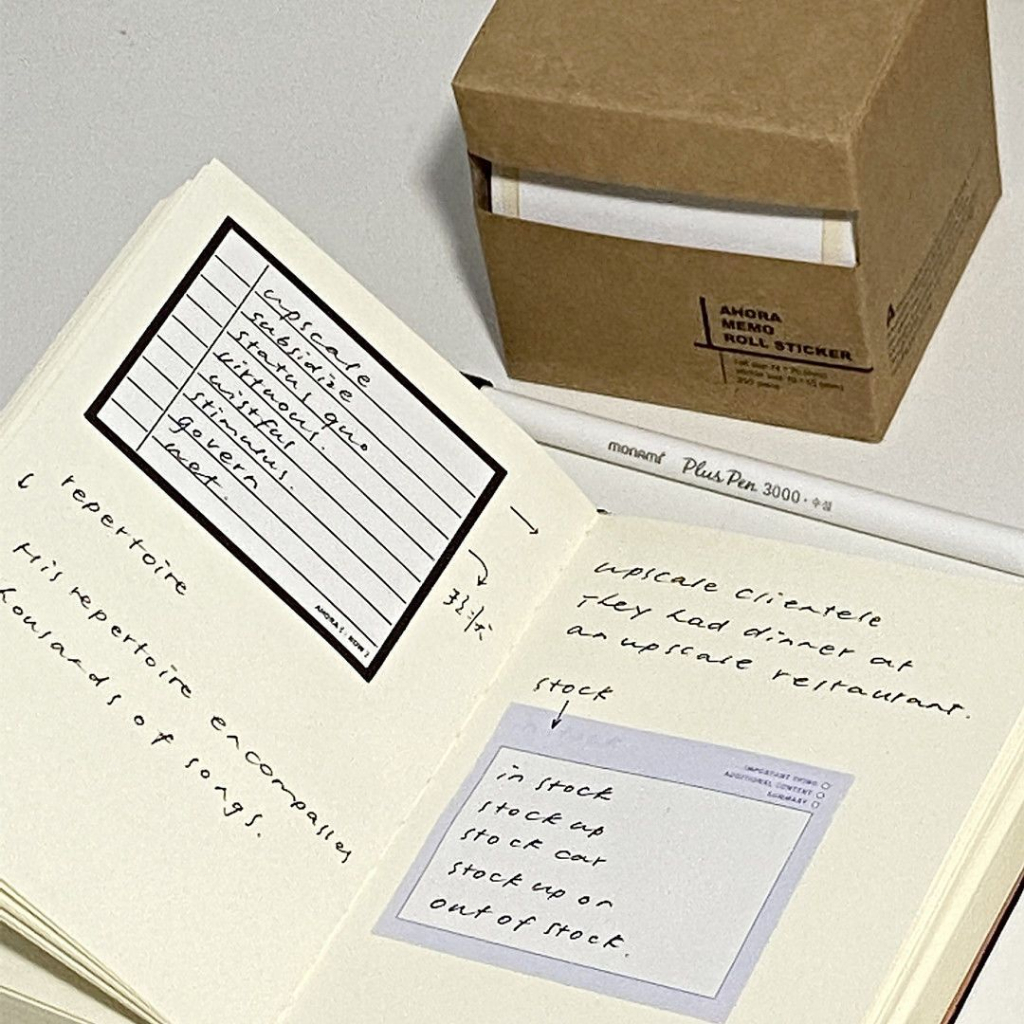 upscale
subsidize
status quo
virtuous.
wistful
stimulus.
govern
met.
AHORA [: NOW ]
repertoire
His repertoire encompasses
thousands of songs.
AHORA
MEMO
ROLL STICKER
monami Plus Pen 3000 · 수성
upscale clientele
They had dinner at
an upscale restaurant.
stock
IMPORTANT THING
ADDITIONAL CONTENT
SUMMARY
in stock
stock up
stock car
stock up on
out of stock.